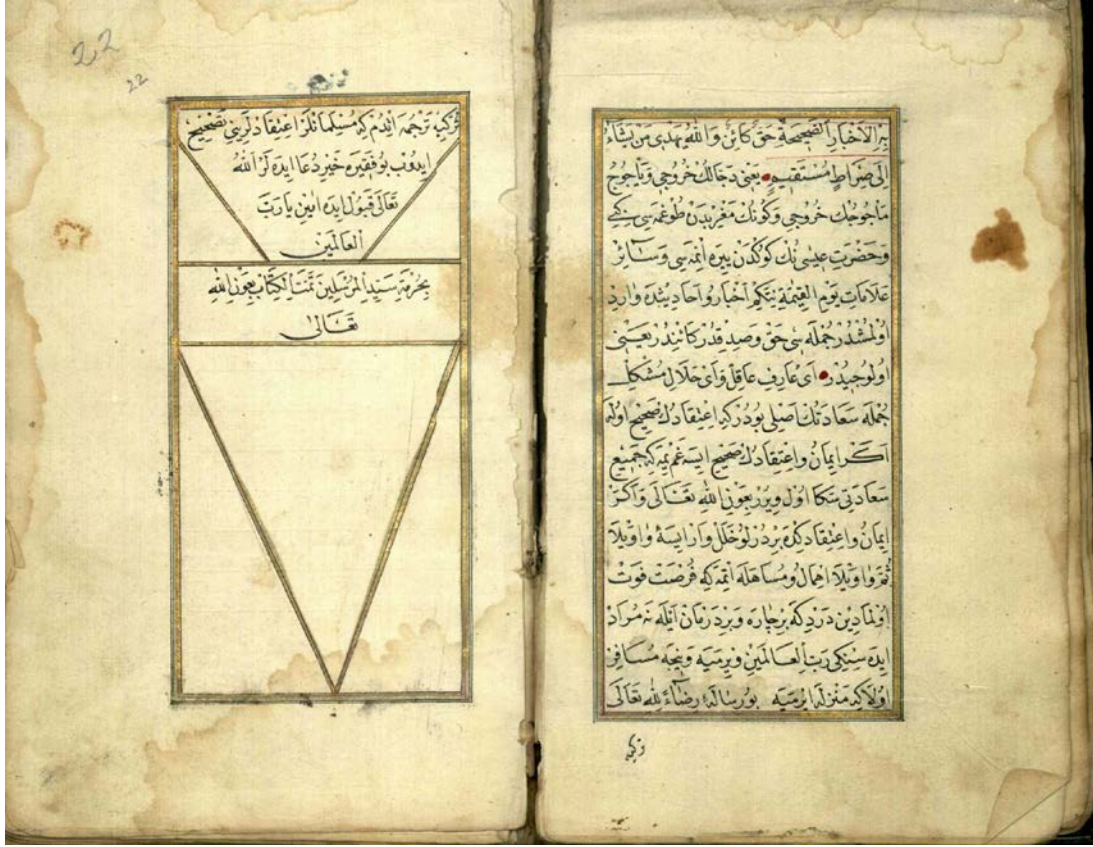 بِهِ الْاَخْبَارُ الصَّحِيحَةِ حَقٌّ كَائِنٌ وَاللهُ يَهْدِى مَنْ يَشَاءُ
اِلَى صِرَاطٍ مُسْتَقِيمٍ يعنى دجالك خروجى وياجوج
ماجوجك خروجى وكونك مغربدن طوغمه سى كبى
وحضرت عيسى نك كوكدن ييره اينمه سى وسائر
علامات يوم القيمة نتكيم اخبار واحاديثده وارد
اولمشدر جمله سى حق وصدقدر كائندر يعنى
اولوجيدر اى عارف عاقل واى حلال مشكل
جمله سعادتك اصلى بودركه اعتقادك صحيح اوله
اكر ايمان واعتقادك صحيح ايسه غم يمه كه جميع
سعادتى سكا اول ويرر بعون الله تعالى واكر
ايمان واعتقادكده بر درلو خلل وار ايسه واويلا
ثم واويلا اهمال ومساهله ايتمه كه فرصت فوت
اولمادين دردكه بر چاره وبر درمان ايله نه مراد
ايده سنكى رب العالمين ويرميه ونيجه مسافر
اولاكه منزله ايرميه بو رسالهٔ رضاء لله تعالى
تركيه
22
22
تركيه ترجمه ايتدم كه مسلمانلر اعتقادلرينى تصحيح
ايدوب بو فقيره خير دعا ايده لر الله
تعالى قبول ايده امين يا رب
العالمين
بحرمة سيد المرسلين تمت الكتاب بعون الله
تعالى